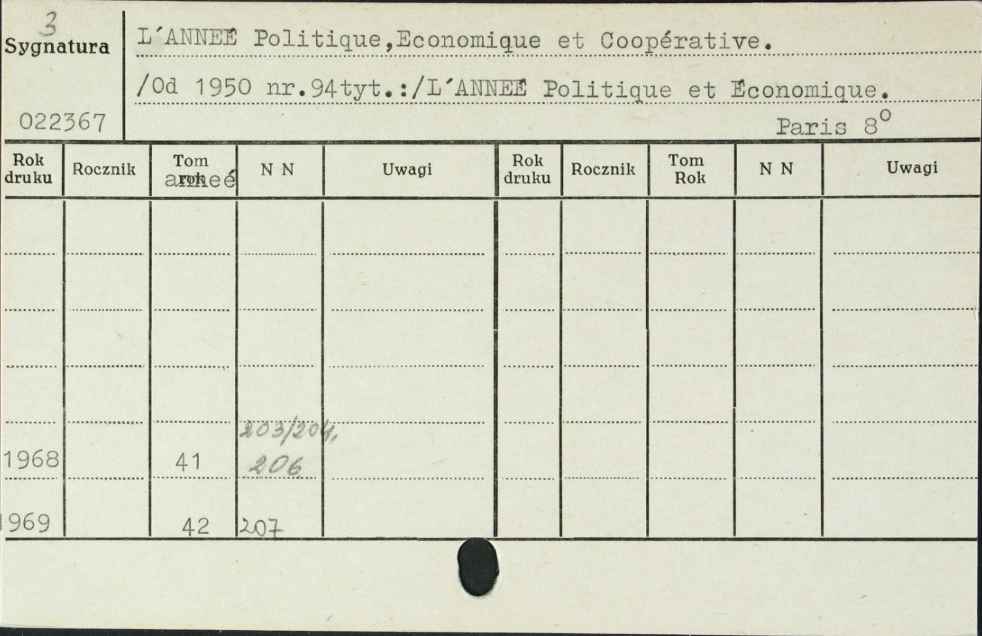 3
Sygnatura
L´ANNEÉ Politique,Economique et Coopérative.
/Od 1950 nr.94tyt.:/L´ANNEÉ Politique et Économique.
022367
Paris 8°
Rok druku Rocznik Tom rok anneé N N Uwagi Rok druku Rocznik Tom Rok N N Uwagi
203/204,
1968 41 206
1969 42 207